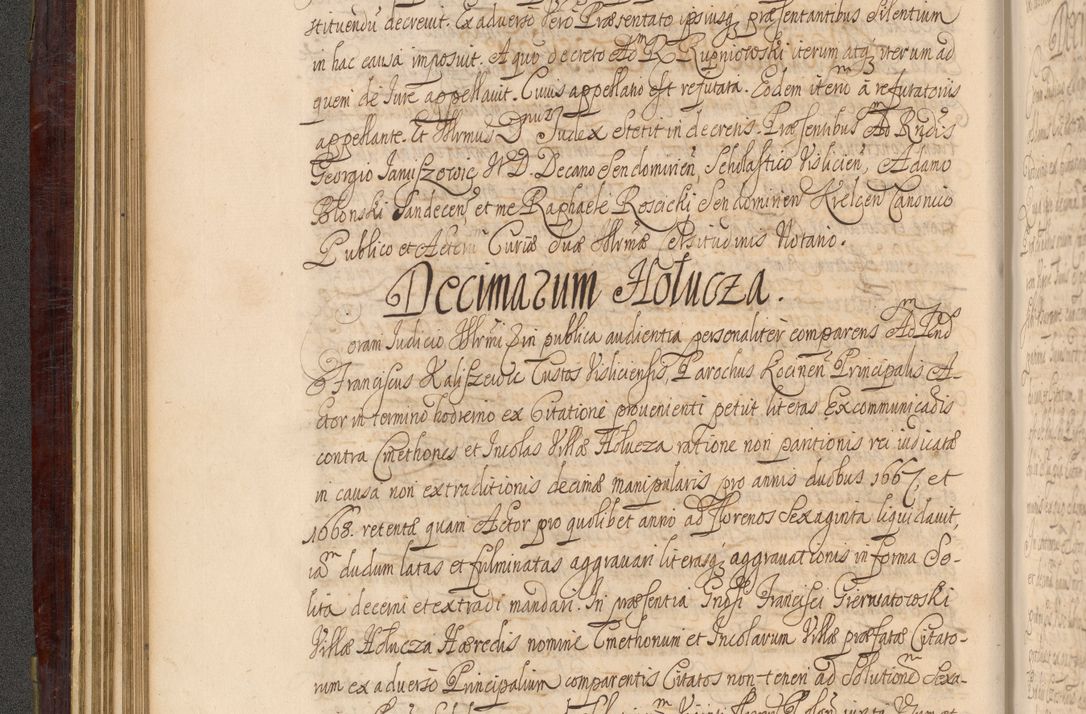 stituendũ decrevit. Ex adverso vero Præsentato ipsiusq̃ præsentantibus Silentium
in hac causa imposuit. A quo decreto Adm R. Rupniowski iterum atq̃ iterum ad
quem de Iure appellavit. Cuius appellatio est refutata. Eodem iterũ à refutatorijs
appellante. Et Illrmus D. Iudex stetit in decretis. Præsentibus Adm Rndis
Georgio Ianuszowic, V. D. Decano Sendomirien̄, Scholastico Vislicien̄, Adamo
Błonski Sandecen̄ et me Raphaele Roscicki Sendomirien̄ Kielcen̄ Canonico
Publico et Actorũ Curiæ Suæ Illrmæ Celsitudinis Notario.
Decimarum Hołucza.
Coram Iudicio Illrmi D. in publica audientia personaliter comparens Adm Rnd
Franciscus Kaliszewic Custos Visliciensis, Parochus Kocinen̄ Principalis A-
ctor in termino hodierno ex Citatione provenienti petijt literas Excommunicatiōis
contra Cmethones et Incolas Villæ Hołucza ratione non paritionis rei iudicatæ
in causa non extraditionis decimæ manipularis pro annis duobus 1667, et
1668. retentæ quam Actor pro quolibet anno ad florenos Sexaginta liquidavit,
iam dudum latas et fulminatas aggravari literasq̃ aggravationis in forma So-
lita decerni et extradi mandari. In præsentia Gnosi Francisci Gierwatowski
Villæ Hołucza Hæredis nomine Cmethonum et Incolarum Villæ præfatæ Citato-
rum ex adverso Principalium comparentis Citatos non teneri ad Solutionem Sexa-